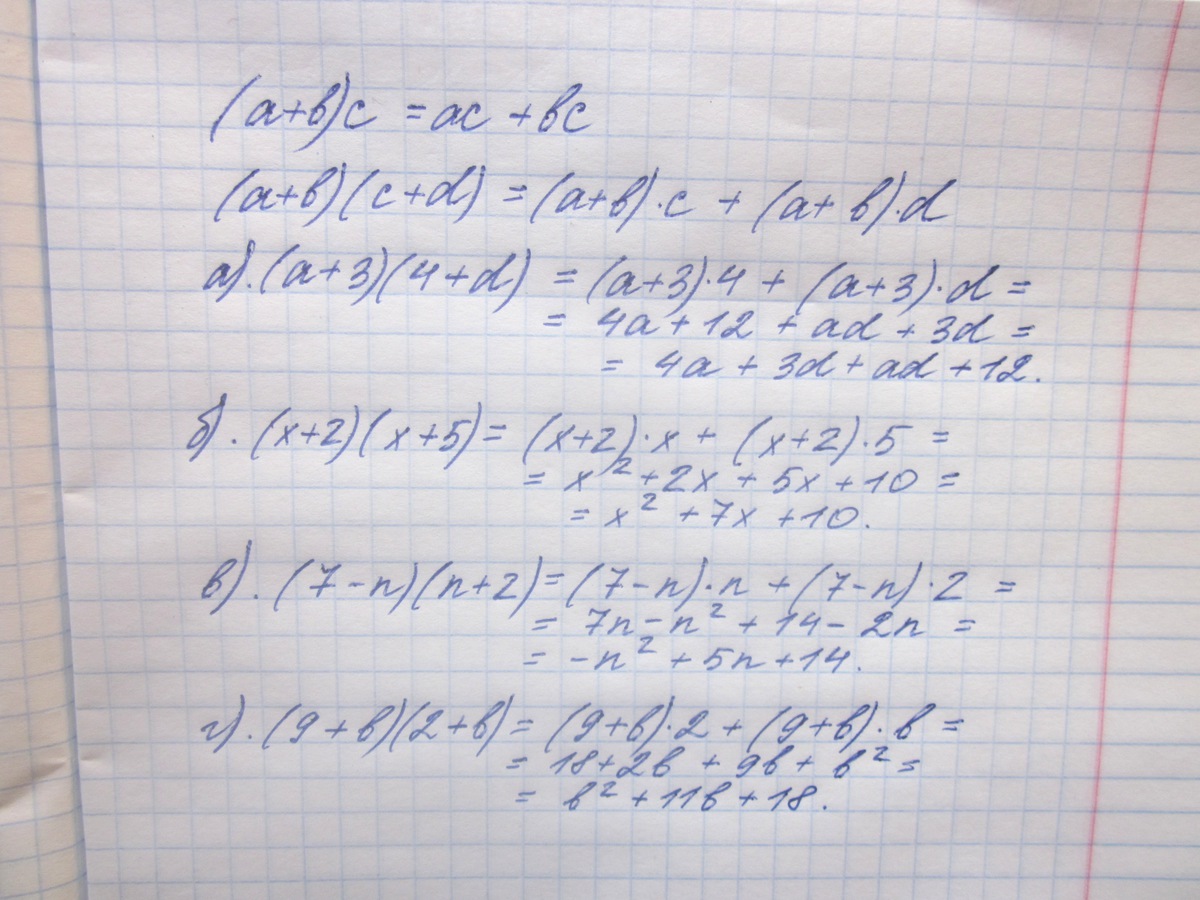 (a+b)c = ac + bc
(a+b)(c+d) = (a+b)·c + (a+b)·d
а).(a+3)(4+d) = (a+3)·4 + (a+3)·d =
= 4a+12 + ad + 3d =
= 4a + 3d + ad + 12.
б). (x+2)(x+5) = (x+2)·x + (x+2)·5 =
= x² + 2x + 5x + 10 =
= x² + 7x + 10.
в). (7-n)(n+2) = (7-n)·n + (7-n)·2 =
= 7n - n² + 14 - 2n =
= -n² + 5n + 14.
г). (9+b)(2+b) = (9+b)·2 + (9+b)·b =
= 18 + 2b + 9b + b² =
= b² + 11b + 18.